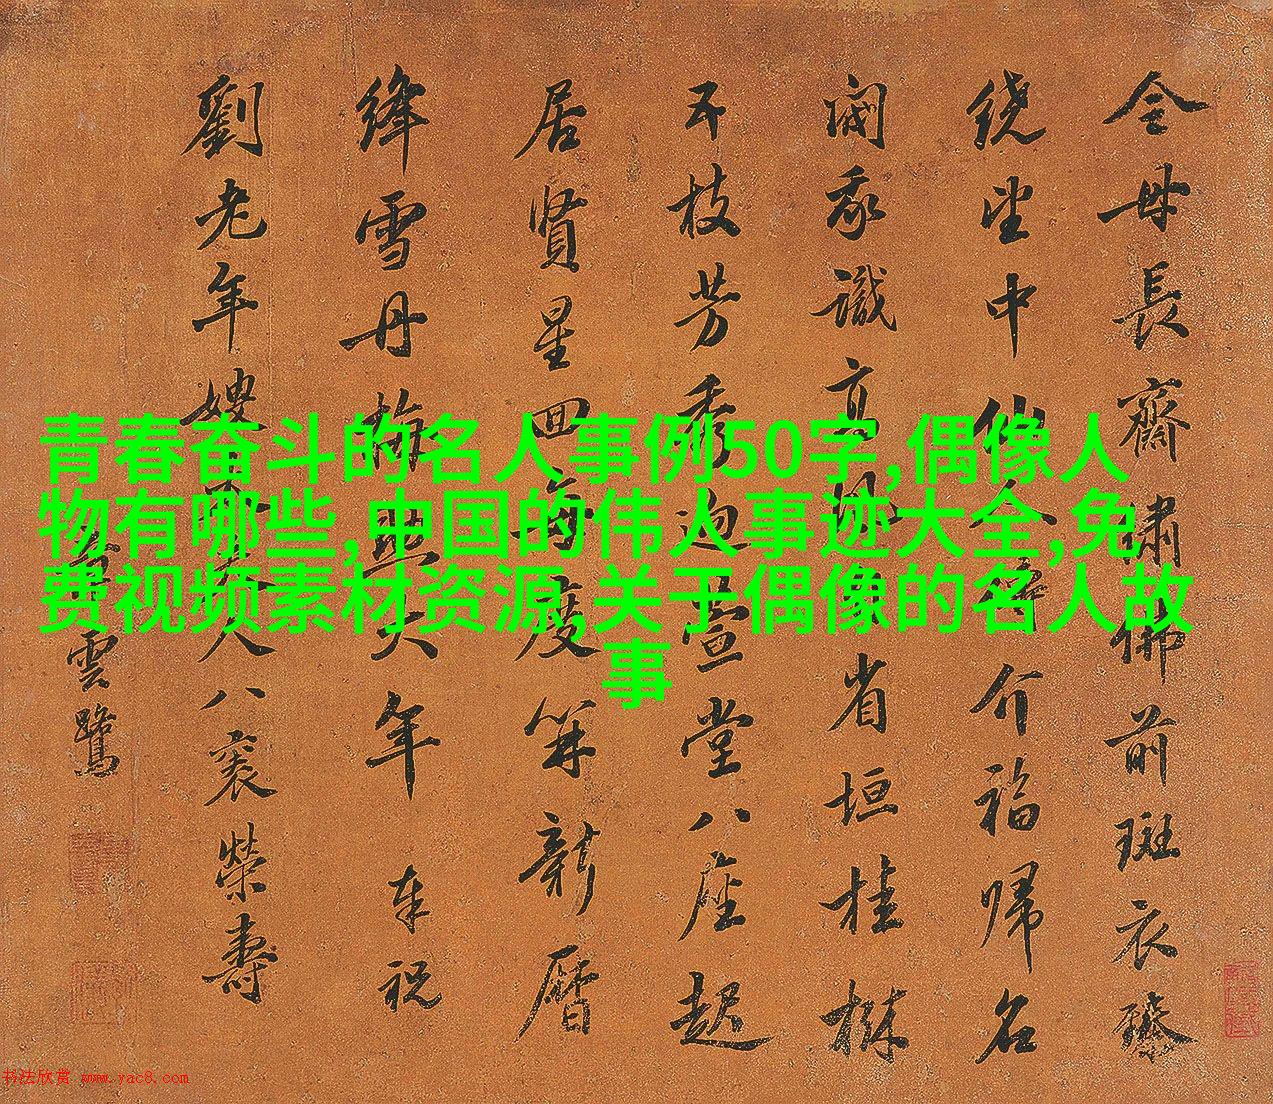 青春奋斗的名人事例50字,偶像人
物有哪些,中国的伟人事迹大全,免
费视频素材资源,关于偶像的名人故
事
母長齋繡佛前斑衣
繞坐中仙介福歸名
閫識高省垣桂林
不枝芳秀迎萱堂八座起
居賢星回每度算新曆
絳雪丹梅大年 奉祝
劉老年嫂太夫人八袠榮壽
雲鷺
书法欣赏 www.yac8.com